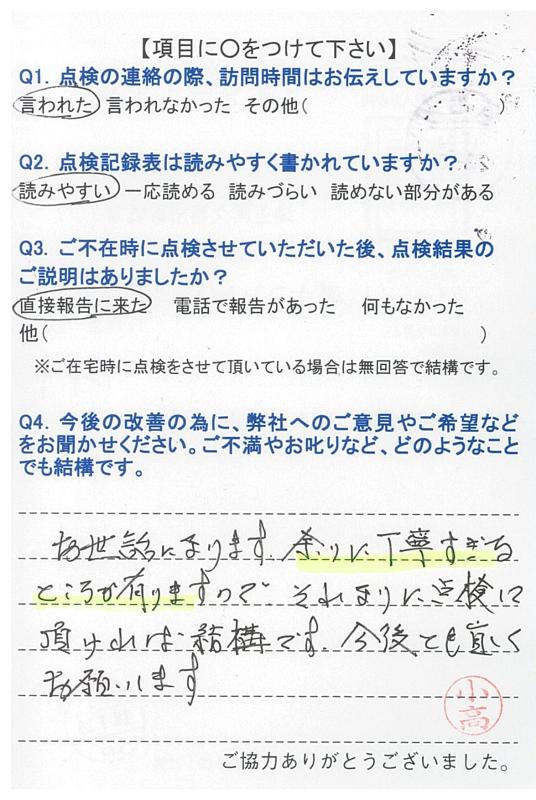 【項目に〇をつけて下さい】
Q1. 点検の連絡の際、訪問時間はお伝えしていますか?
言われた 言われなかった その他( )
Q2. 点検記録表は読みやすく書かれていますか?
読みやすい 一応読める 読みづらい 読めない部分がある
Q3. ご不在時に点検させていただいた後、点検結果の
ご説明はありましたか?
直接報告に来た 電話で報告があった 何もなかった
他( )
※ご在宅時に点検をさせて頂いている場合は無回答で結構です。
Q4. 今後の改善の為に、弊社へのご意見やご希望など
をお聞かせください。ご不満やお叱りなど、どのようなこと
でも結構です。
お世話になります、余りに丁寧すぎる
ところが有りますので、それなりに点検して
頂ければ結構です、今後とも宜しく
お願いします
小高
ご協力ありがとうございました。